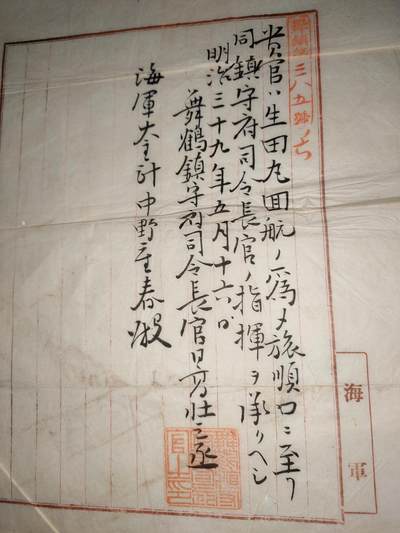 三八五號ノ七
貴官ハ生田丸囬航ノ爲メ旅順口ニ至リ
同鎮守府司令長官ノ指揮ヲ承クヘシ
明治三十九年五月十六日
舞鶴鎮守府司令長官日高壯之丞
海軍大主計中野重春殿
海軍